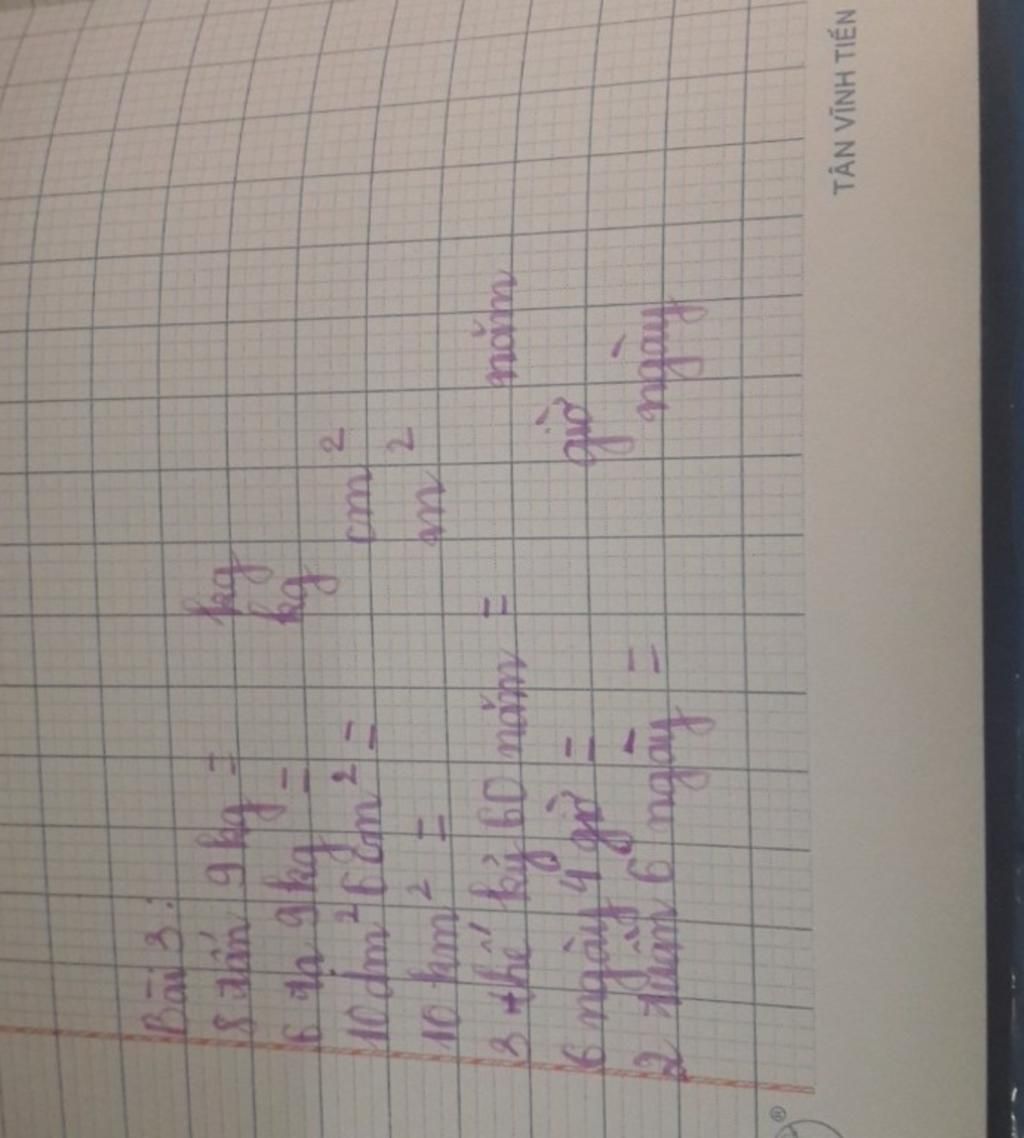 Bài 3:
8 tấn 9 kg = kg
6 tạ 9 kg = kg
10 dm² 6 cm² = cm²
10 km² = m²
3 thế kỷ 60 năm = năm
6 ngày 4 giờ = giờ
2 tuần 6 ngày = ngày
TÂN VĨNH TIẾN
®